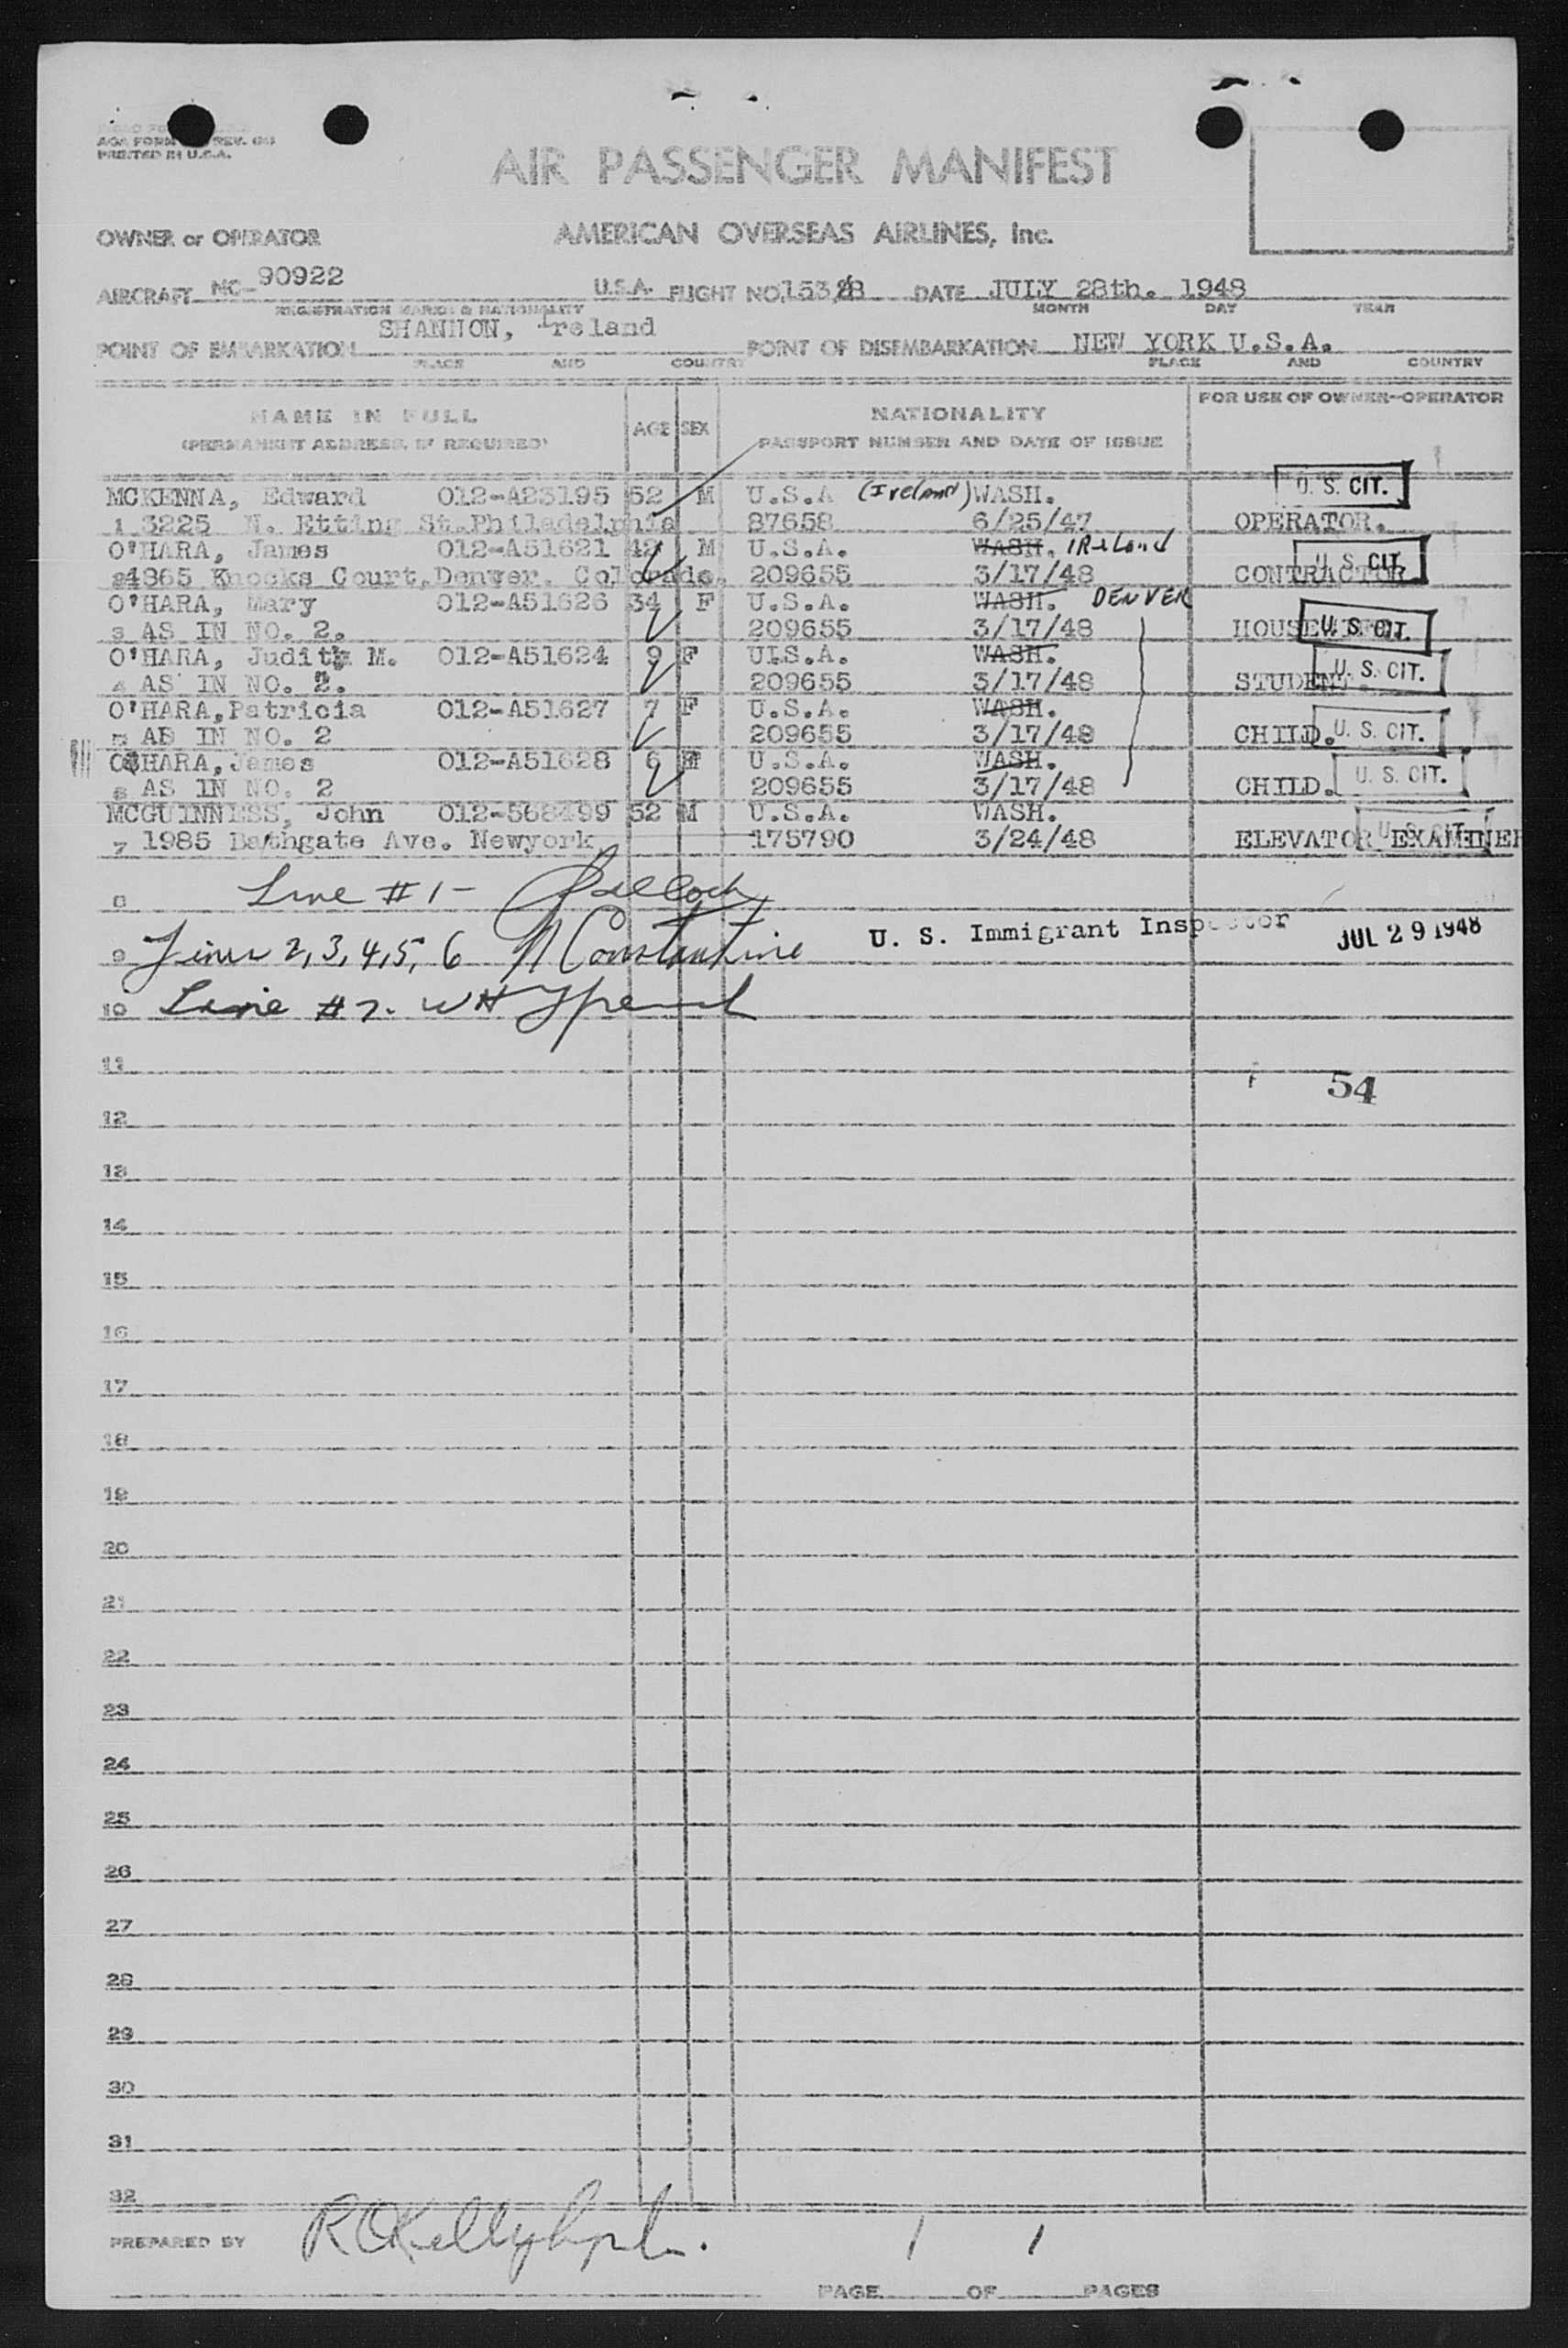 AOA FORM REV.
PRINTED IN U.S.A.
AIR PASSENGER MANIFEST
OWNER or OPERATOR AMERICAN OVERSEAS AIRLINES, Inc.
AIRCRAFT NC-90922 U.S.A. FLIGHT NO. DATE JULY 28th. 1948
REGISTRATION MARKS & NATIONALITY MONTH DAY YEAR
POINT OF EMBARKATION SHANNON, Ireland POINT OF DISEMBARKATION NEW YORK U.S.A.
PLACE AND COUNTRY PLACE AND COUNTRY
NAME IN FULL AGE SEX NATIONALITY FOR USE OF OWNER-OPERATOR
(PERMANENT ADDRESS, IF REQUIRED) PASSPORT NUMBER AND DATE OF ISSUE
MCKENNA, Edward 012-A23195 52 M U.S.A (Ireland) WASH. U. S. CIT.
1 3225 N. Etting St.Philadelphia 87658 6/25/47 OPERATOR.
O'HARA, James 012-A51621 42 M U.S.A. WASH. IReLand U. S. CIT.
2 4865 Knocks Court,Denver. Colorado. 209655 3/17/48 CONTRACTOR
O'HARA, Mary 012-A51626 34 F U.S.A. WASH. DENVER
3 AS IN NO. 2. 209655 3/17/48 U. S. CIT.
O'HARA, Judith M. 012-A51624 9 F UIS.A. WASH. U. S. CIT.
4 AS IN NO. 2. 209655 3/17/48 STUDENT.
O'HARA,Patricia 012-A51627 7 F U.S.A. WASH.
5 AB IN NO. 2 209655 3/17/48 CHILD. U. S. CIT.
O'HARA,James 012-A51628 6 M U.S.A. WASH. U. S. CIT.
6 AS IN NO. 2 209655 3/17/48 CHILD.
MCGUINNESS, John 012-568499 52 M U.S.A. WASH. U. S. CIT.
7 1985 Bathgate Ave. Newyork 175790 3/24/48 ELEVATOR EXAMINER
8 Line #1-
9 Lines 2,3,4,5,6 N Constantine U. S. Immigrant Inspector JUL 29 1948
10 Line #7. WH
11
54
12
13
14
15
16
17
18
19
20
21
22
23
24
25
26
27
28
29
30
31
32
PREPARED BY
PAGE 1 OF 1 PAGES